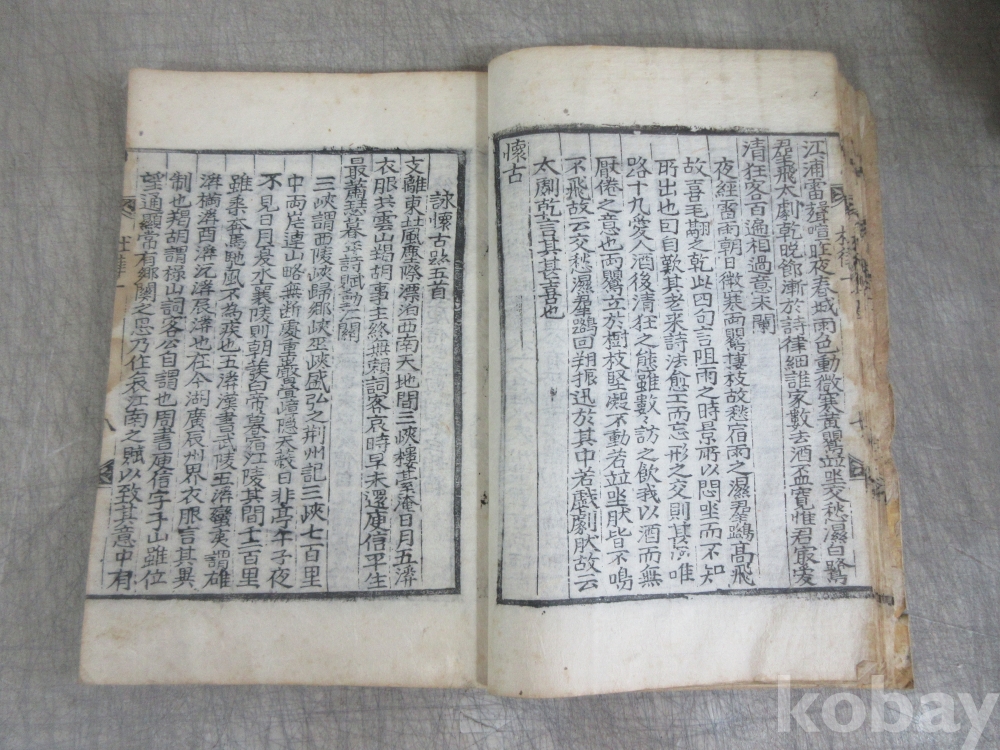 江浦雷聲喧昨夜春城雨色動微寒黃鸎並坐交愁濕白鷺
羣飛太劇乾晚節漸於詩律細誰家數去酒盃寬惟君最愛
清狂客百遍相過意未闌
夜經雷雨朝日微寒両鸎棲枝故愁宿雨之濕羣鷺高飛
故喜毛翅之乾此四句言阻雨之時景所以悶坐而不知
所出也曰自歎其老來詩法愈工而忘形之交則其所唯
路十九愛人酒後清狂之態雖數〻訪之飮我以酒而無
厭倦之意也両鸎立於樹枝堅凝不動若並坐肰皆不鳴
不飛故云交愁濕羣鷺回翔振迅於其中若戱劇肰故云
太劇乾言其甚喜也
懷古
詠懷古跡五首
支離東北風塵際漂泊西南天地間三峽樓臺淹日月五溪
衣服共雲山羯胡事主終無賴詞客哀時早未還庾信平生
最蕭瑟暮年詩賦動江關
三峽謂西陵峽歸鄉峽巫峽盛弘之荆州記三峽七百里
中両岸連山略無斷處重巖疊嶂隱天蔽日非亭午子夜
不見日月夏水襄陵則朝發白帝暮宿江陵其間千二百里
雖乘奔馬馳風不為疾也五溪漢書武陵五溪蠻夷謂雄
溪樠溪酉溪沅溪辰溪也在今湖廣辰州界衣服言其異
制也羯胡謂祿山詞客公自謂也周書庾信字子山雖位
望通顯常有鄉關之思乃作哀江南之賦以致其意中有
kobay